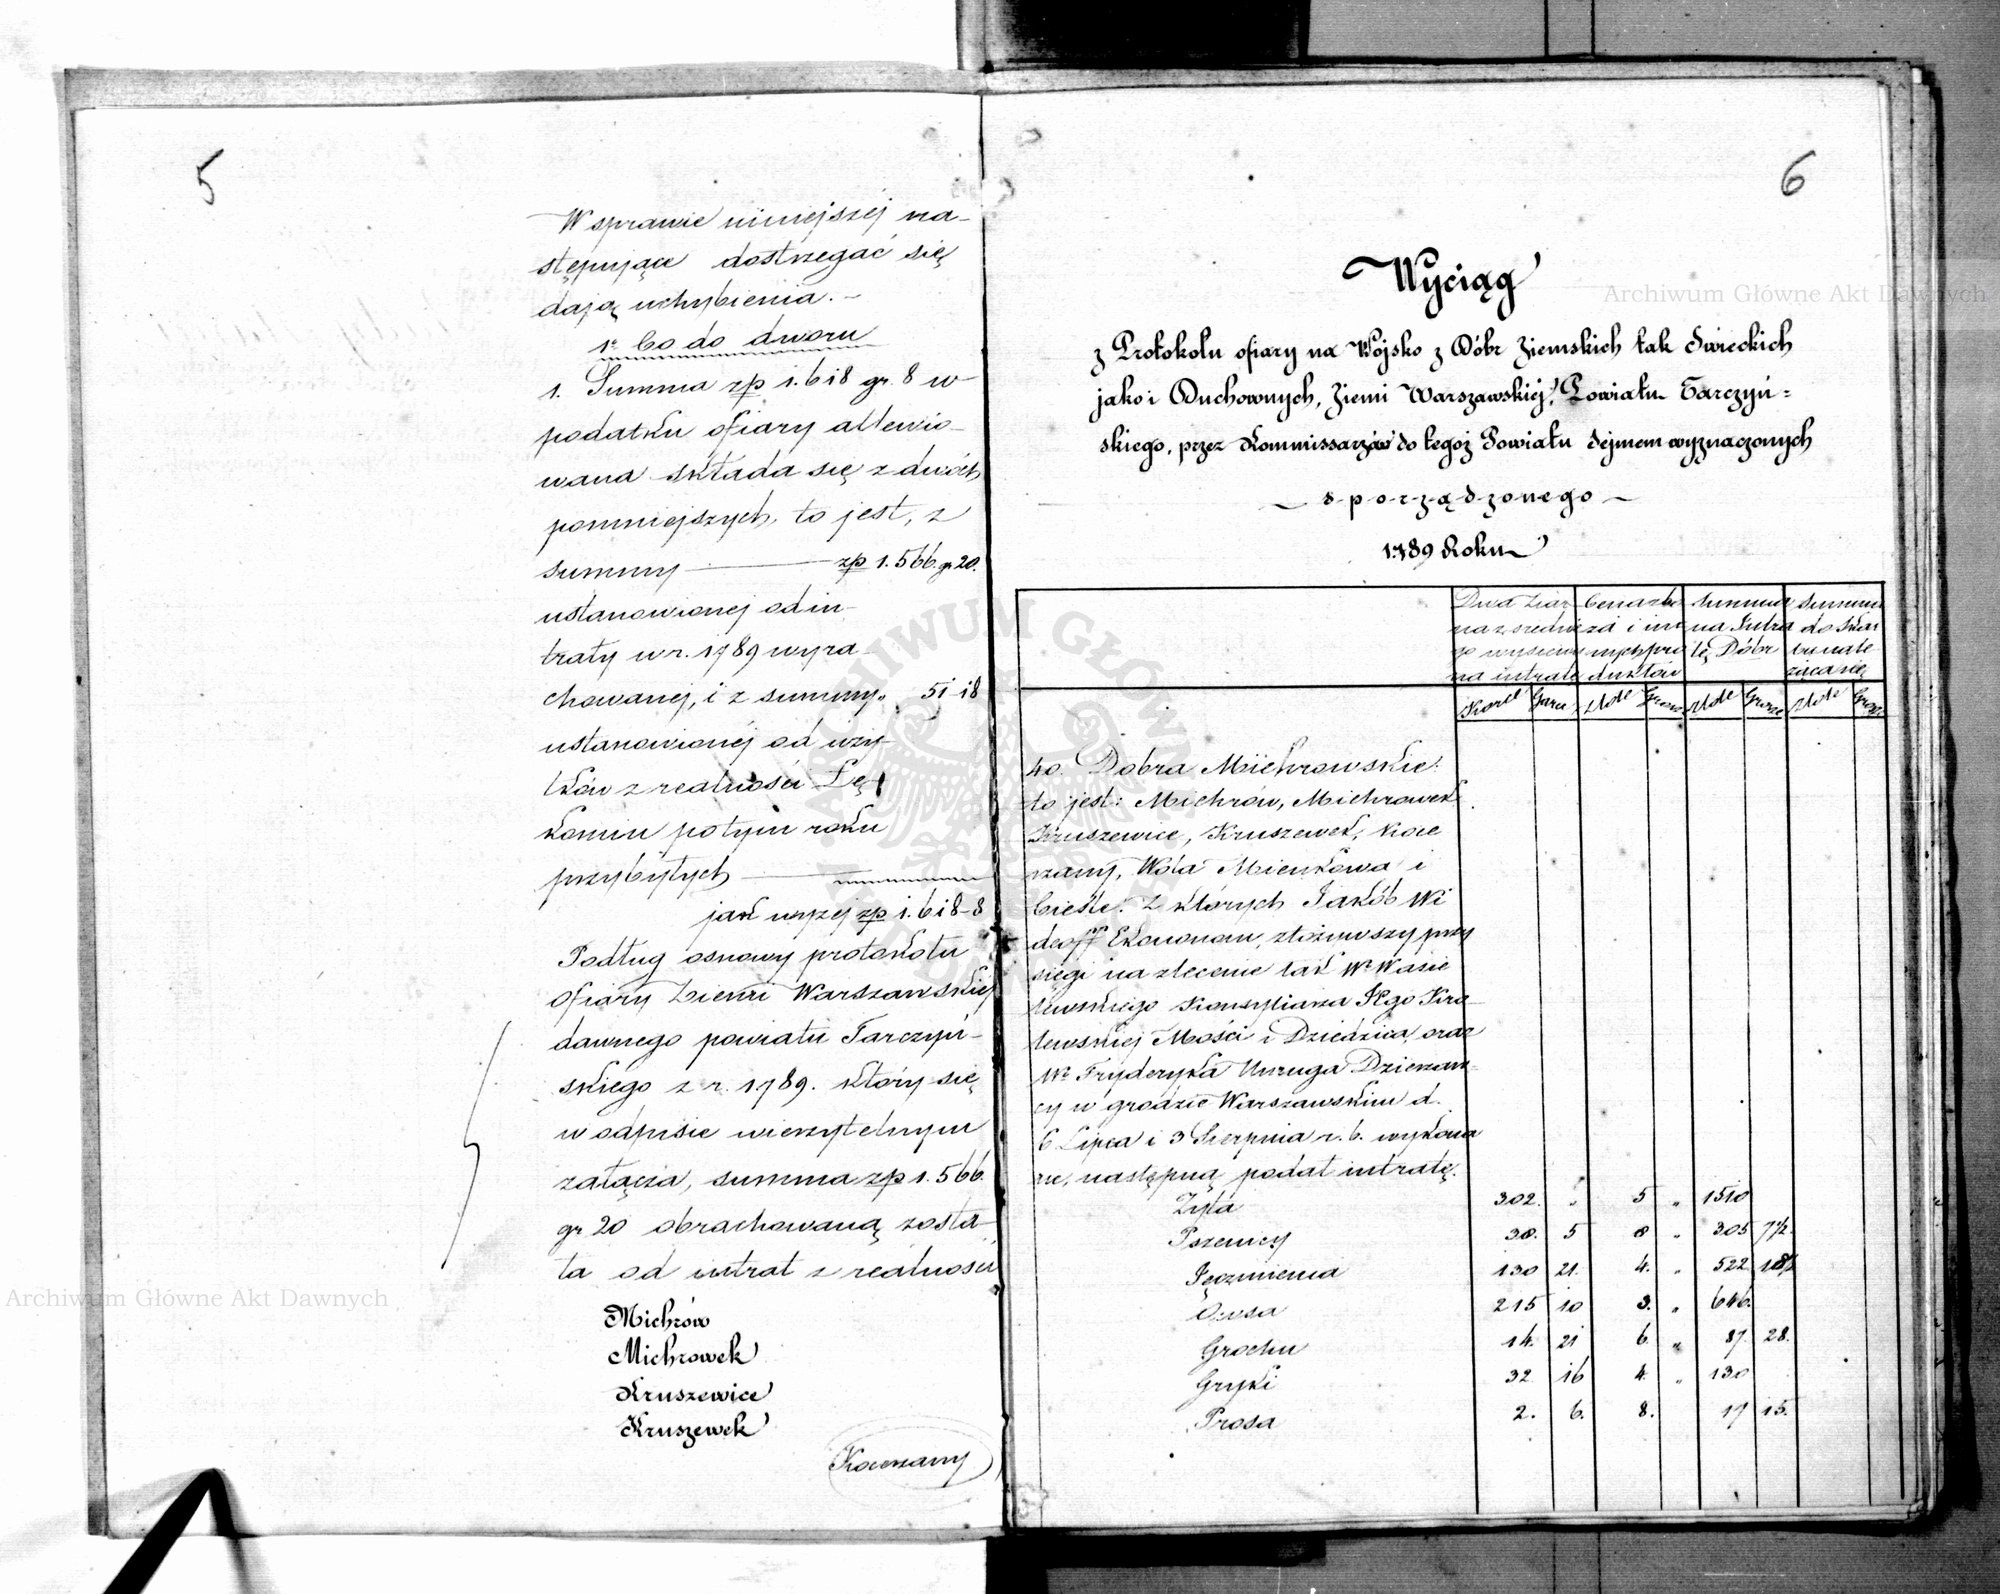 5
W sprawie niniejszéj na-
stępujące dostrzegać się
dają uchybienia. -
1º Co do dworu
1. Summa zp 1.618 gr. 8 w
podatku ofiary allewio-
wana składa się z dwóch
pomniejszych, to jest, z
summy zp 1.566. gr 20.
ustanowionej od in-
traty w r. 1789 wyra-
chowanej, i z summy " 51-18
ustanowionéj od użyt-
ków z realności Łę
komin po tym roku
przybyłych
jak wyżej zp 1.618-8
Podług osnowy protokołu
ofiary Ziemi Warszawskiej
dawnego powiatu Tarczyń-
skiego z r. 1789. który się
w odpisie wierzytelnym
załącza, summa zp 1.566.
gr 20 obrachowaną zosta-
ła od intrat z realności
Michrów
Michrowek
Kruszewice
Kruszewek
Kocerany
6
Wyciąg
z Protokołu ofiary na Wojsko z Dóbr Ziemskich tak Świeckich
jako i Duchownych, Ziemi Warszawskiéj, Powiatu Tarczyń=
skiego, przez Kommissarzów do tegoż Powiatu Sejmem wyznaczonych
sporządzonego
1789 Roku
Dwa ziar Cena zbo Summa Summa
na z średnie ża i in na Intra do Skar
go wysiewu nych pro tę Dóbr bu nale
na intratę duktów żąca się
Korce Garce Złote Grosze Złote Grosze Złote Grosze
40. Dobra Michrowskie:
to jest: Michrów, Michrowek
Kruszewice, Kruszewek, Koce
rzany, Wola Mienkowa i
Cieśle. Z których Jakób Wi
deoff Ekonomom, złożywszy przy
sięgi na zlecenie tak Wº Wasie
lewskiego Konsyliarza JKgo Kró
lewskiej Mości i Dziedzica, oraz
Wº Fryderyka Unruga Dzierżaw-
cy w grodzie Warszawskim d.
6 Lipca i 3 Sierpnia r. b. wykona
ne, następną podał intratę.
Żyta 302. " 5 " 1510
Pszenicy 38. 5 8 " 305 7½.
Jęczmienia 130 21. 4. " 522. 18½
Owsa 215 10 3. " 646.
Grochu 14. 21 6. " 87. 28.
Gryki 32. 16 4. " 130
Prosa 2. 6. 8. 17 15.
Archiwum Główne Akt Dawnych
Archiwum Główne Akt Dawnych